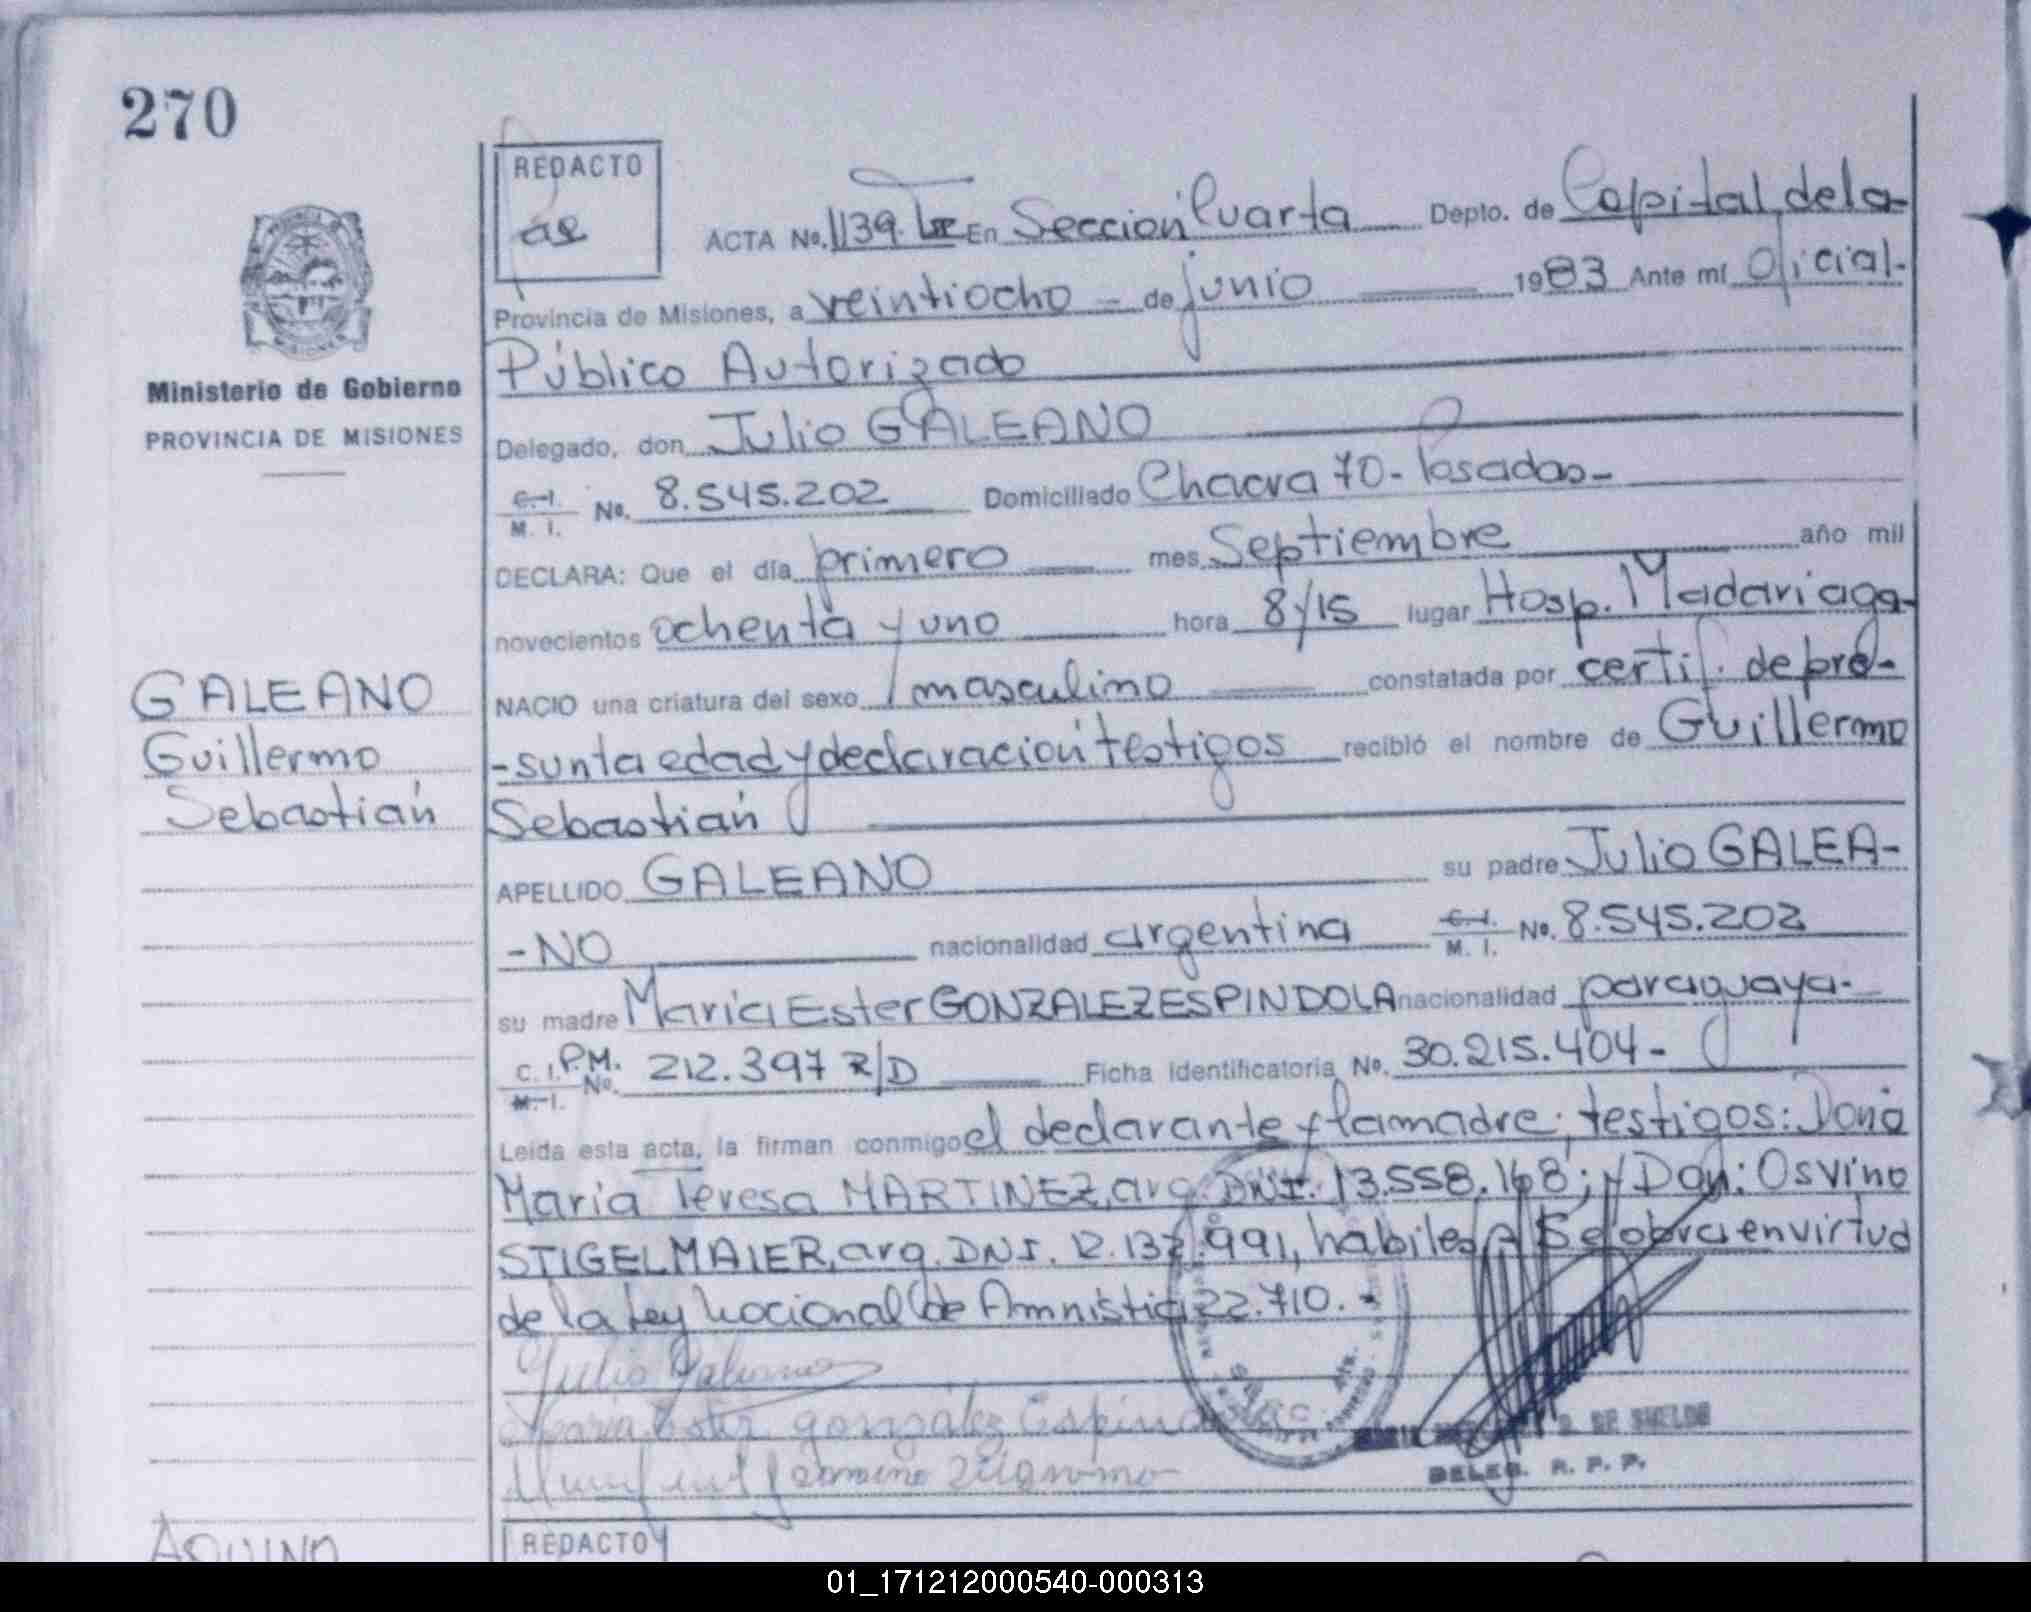 270
REDACTO
ACTA No. 1139. En Sección Cuarta Depto. de Capital, de la
Provincia de Misiones, a veintiocho - de junio 1983 Ante mí Oficial.
Público Autorizado
Ministerio de Gobierno
PROVINCIA DE MISIONES
Delegado, don Julio GALEANO
C.I.
M. I. No. 8.545.202 Domiciliado Chacra 70 - Posadas -
DECLARA: Que el día primero mes Septiembre año mil
novecientos ochenta y uno hora 8y15 lugar Hosp. Madariaga
GALEANO
Guillermo
Sebastián
NACIO una criatura del sexo masculino constatada por certif. de pre-
-sunta edad y declaración testigos recibió el nombre de Guillermo
Sebastián
APELLIDO GALEANO su padre Julio GALEA-
-NO nacionalidad argentina C.I.
M. I. No. 8.545.202
su madre María Ester GONZALEZ ESPINDOLA nacionalidad paraguaya.-
C. I. P.M.
M. I. No. 212.397 R/D Ficha identificatoria No. 30.215.404-
Leída esta acta, la firman conmigo el declarante y la madre; testigos: Doña
María Teresa MARTINEZ, arg. DNI. 13.558.168; y Don: Osvino
STIGELMAIER, arg. DNI. 12.137.991, hábiles.- Se labra en virtud
de la Ley Nacional de Amnistia 22.710.-
Julio Galeano
María Ester González Espindola
DELEG. R. P. P.
AQUINO
REDACTO
01_171212000540-000313